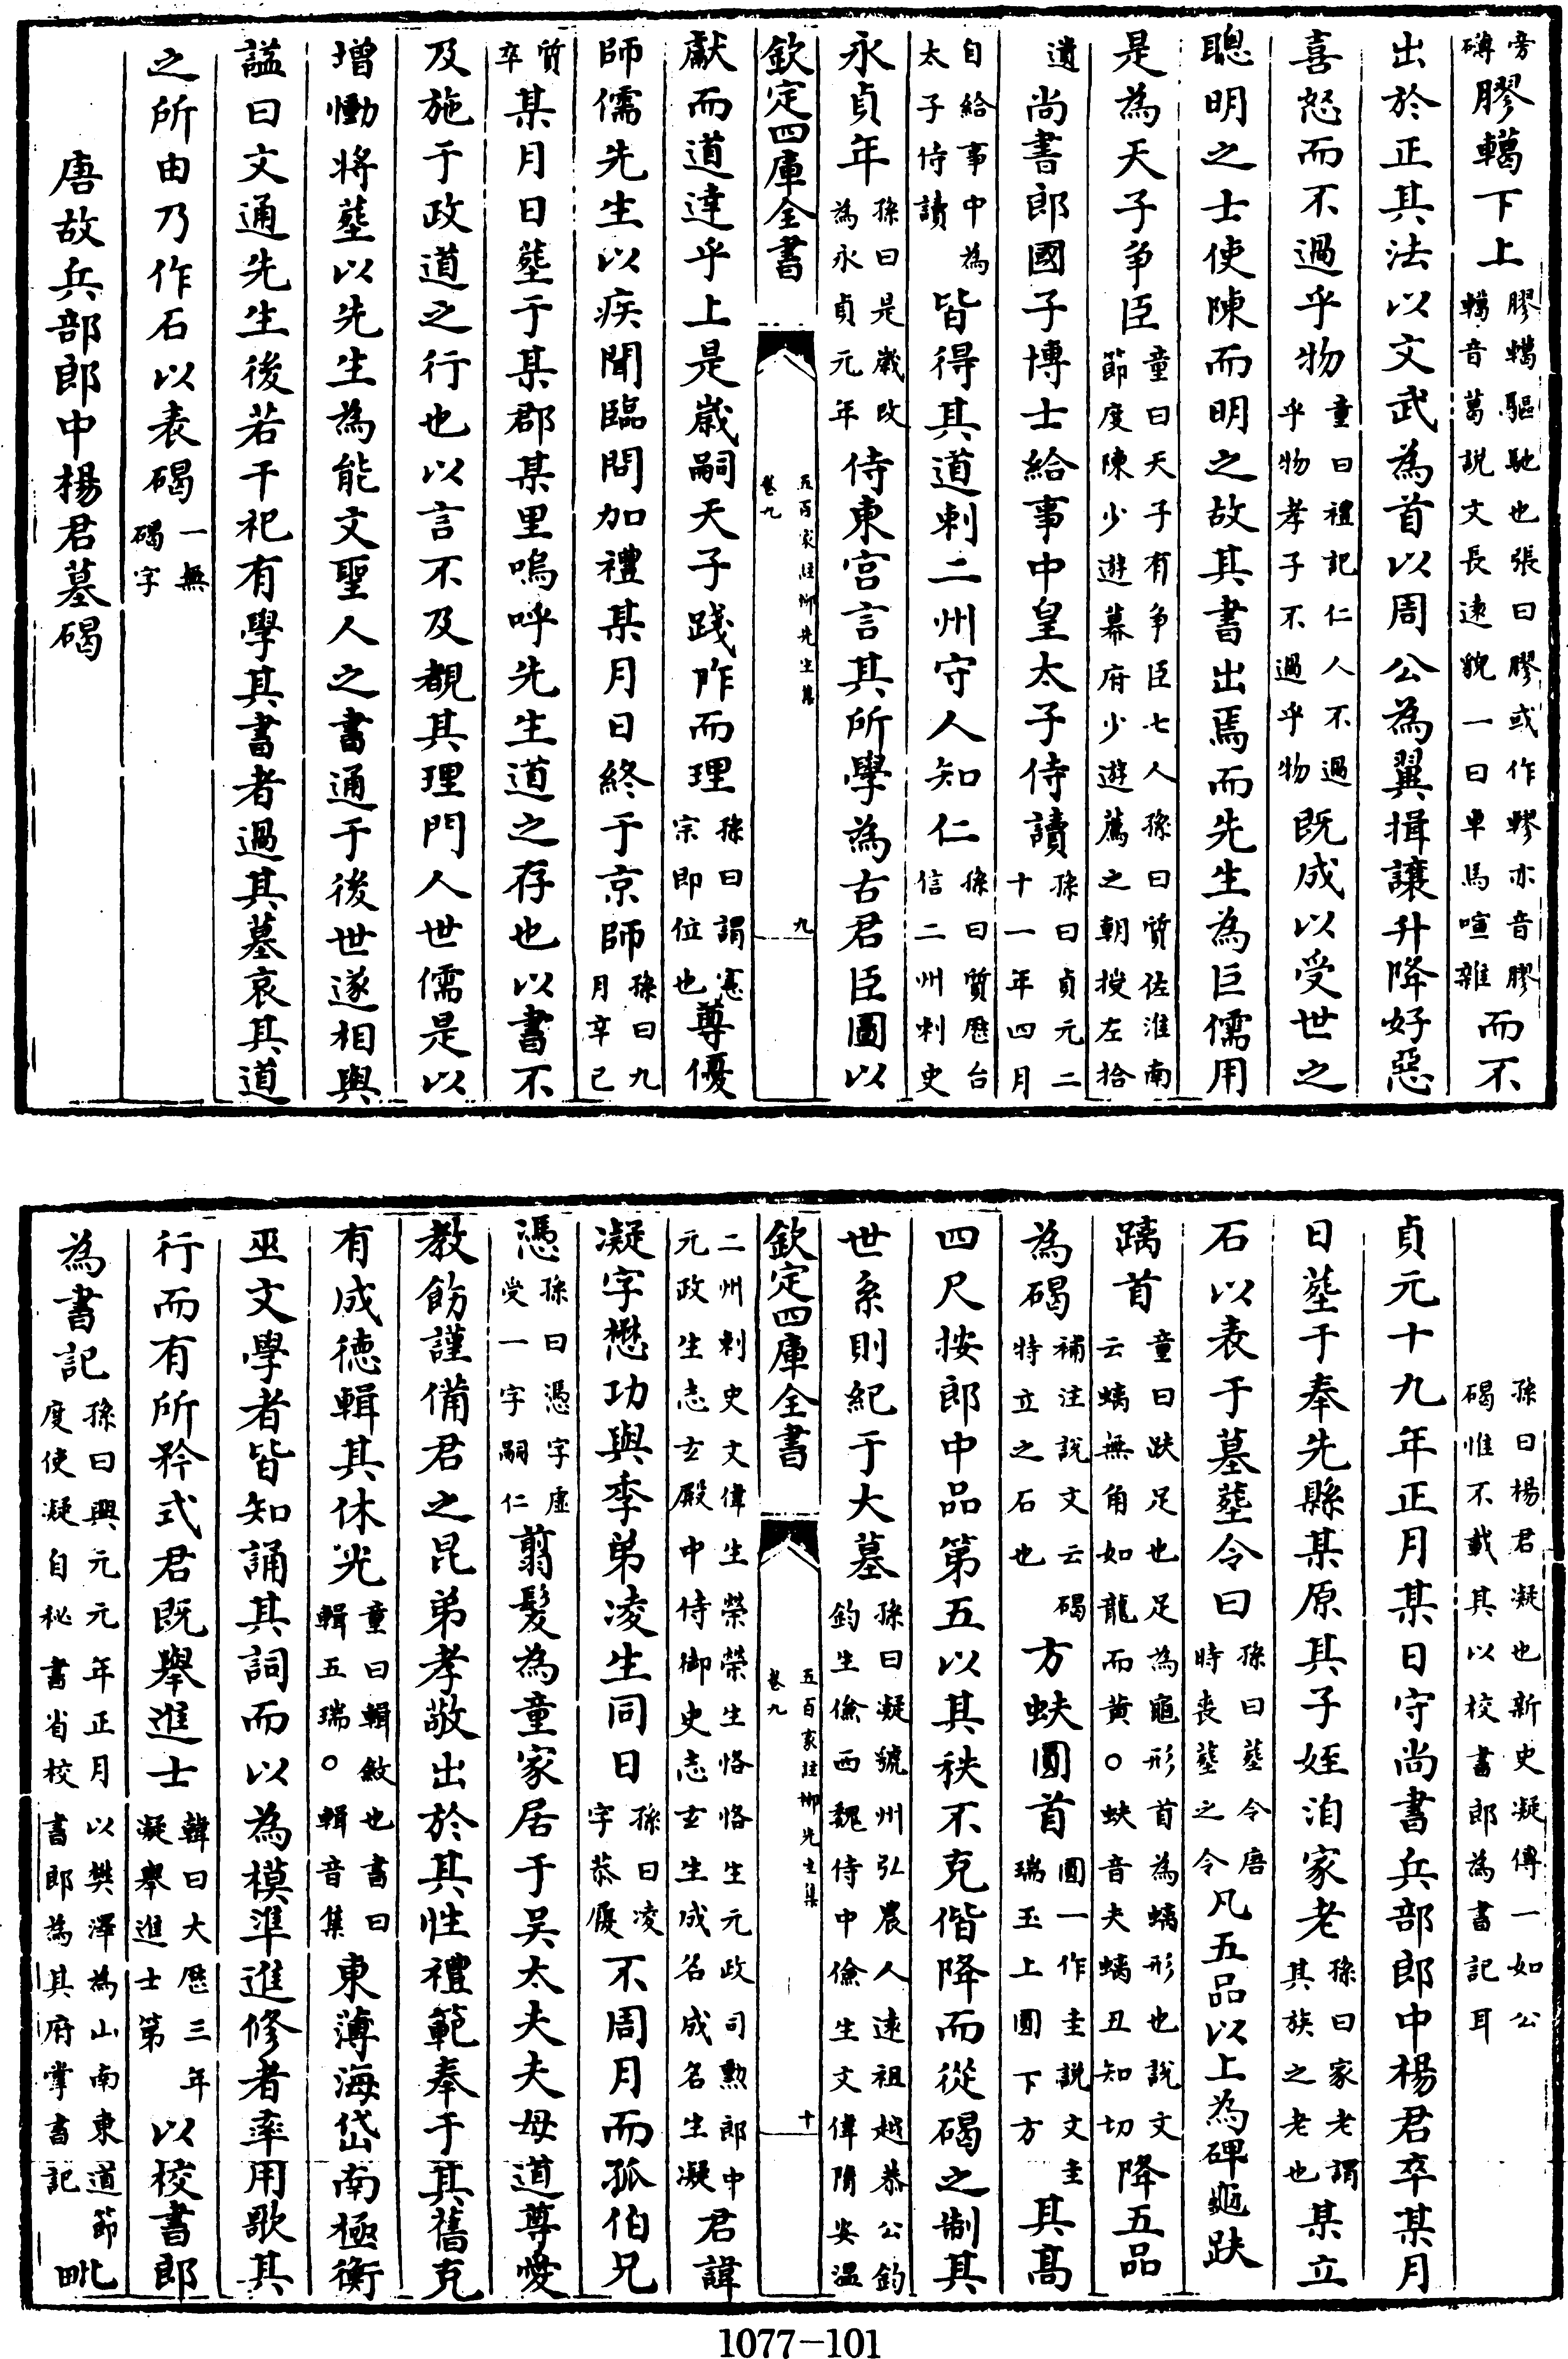 旁礴膠轕下上膠轕驅馳也張曰膠或作轇亦音膠轕音葛說文長逺貌一曰車馬喧雜而不
出於正其法以文武為首以周公為翼揖讓升降好惡
喜怒而不過乎物童曰禮記仁人不過乎物孝子不過乎物既成以受世之
聰明之士使陳而明之故其書出焉而先生為巨儒用
是為天子争臣童曰天子有争臣七人孫曰質佐淮南節度陳少遊幕府少遊薦之朝授左拾
遺尚書郎國子博士給事中皇太子侍讀孫曰貞元二十一年四月
自給事中為太子侍讀皆得其道刺二州守人知仁孫曰質歴台信二州刺史
永貞年孫曰是歲改為永貞元年侍東宮言其所學為古君臣圖以
欽定四庫全書
五百家註柳先生集
卷九
九
獻而道達乎上是歲嗣天子踐阼而理孫曰謂憲宗即位也尊優
師儒先生以疾聞臨問加禮某月日終于京師孫曰九月辛己
質卒某月日塟于某郡某里嗚呼先生道之存也以書不
及施于政道之行也以言不及覩其理門人世儒是以
增慟將塟以先生為能文聖人之書通于後世遂相與
諡曰文通先生後若干祀有學其書者過其墓哀其道
之所由乃作石以表碣一無碣字
唐故兵部郎中楊君墓碣
孫曰楊君凝也新史凝傳一如公碣惟不載其以校書郎為書記耳
貞元十九年正月某日守尚書兵部郎中楊君卒某月
日塟于奉先縣某原其子姪洎家老孫曰家老謂其族之老也某立
石以表于墓塟令曰孫曰塟令唐時喪塟之令凡五品以上為碑龜趺
螭首童曰趺足也足為龜形首為螭形也說文云螭無角如龍而黄○蚨音夫螭丑知切降五品
為碣補注說文云碣特立之石也方蚨圓首圓一作圭說文圭瑞玉上圓下方其髙
四尺按郎中品第五以其秩不克偕降而從碣之制其
世系則紀于大墓孫曰凝虢州弘農人逺祖越恭公鈞鈞生儉西魏侍中儉生文偉隋安温
欽定四庫全書
五百家註柳先生集
卷九
十
二州刺史文偉生榮榮生恪恪生元政司勲郎中元政生志𤣥殿中侍御史志𤣥生成名成名生凝君諱
凝字懋功與季弟凌生同日孫曰凌字恭履不周月而孤伯兄
憑孫曰憑字虚受一字嗣仁翦髮為童家居于吴太夫夫母道尊愛
教飭謹備君之昆弟孝敬出於其性禮範奉于其舊克
有成徳輯其休光童曰輯斂也書曰輯五瑞○輯音集東薄海岱南極衡
巫文學者皆知誦其詞而以為模凖進修者率用歌其
行而有所矜式君既舉進士韓曰大歴三年凝舉進士第以校書郎
為書記孫曰興元元年正月以樊澤為山南東道節度使凝自秘書省校書郎為其府掌書記毗
1077-101